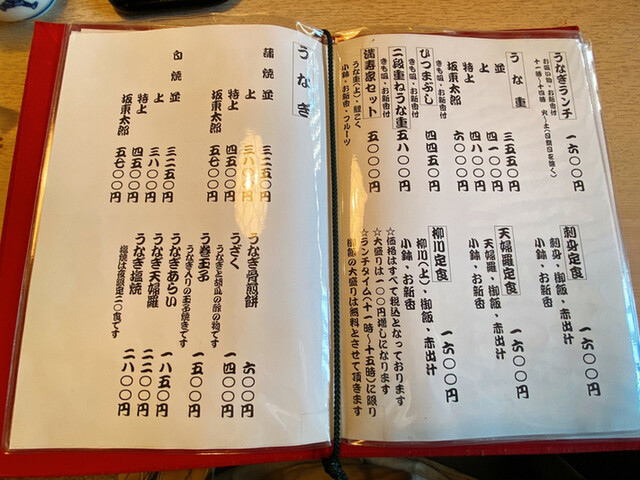 うなぎランチ 一六〇〇円
お吸い物・お新香付
十一時～十四時 火～土(日祭日を除く)
うな重
並 三五五〇円
上 四一〇〇円
特上 四八〇〇円
坂東太郎 六〇〇〇円
きも吸・お新香付
ひつまぶし 四四五〇円
きも吸・お新香付
二段重ねうな重 五八〇〇円
きも吸・お新香付
満寿家セット 五〇〇〇円
うな重(上)・鯉こく
小鉢・お新香・フルーツ
刺身定食 一六〇〇円
刺身・御飯・赤出汁
小鉢・お新香
天婦羅定食 一六〇〇円
天婦羅・御飯・赤出汁
小鉢・お新香
柳川定食 一六〇〇円
柳川(上)・御飯・赤出汁
小鉢・お新香
☆価格はすべて税込となっております
☆大盛りは一〇〇円増しになります
☆ランチタイム(十一時～十五時)に限り
御飯の大盛りは無料とさせて頂きます
うなぎ
蒲焼
並 三二五〇円
上 三八〇〇円
特上 四五〇〇円
坂東太郎 五七〇〇円
白焼
並 三二五〇円
上 三八〇〇円
特上 四五〇〇円
坂東太郎 五七〇〇円
うなぎ骨煎餅 六〇〇円
うざく 一四〇〇円
うなぎと胡瓜の酢の物です
う巻玉子 一五〇〇円
うなぎ入りの玉子焼きです
うなぎあらい 一八五〇円
うなぎ天婦羅 二二〇〇円
うなぎ塩焼 二八〇〇円
塩焼は夜限定二〇食です